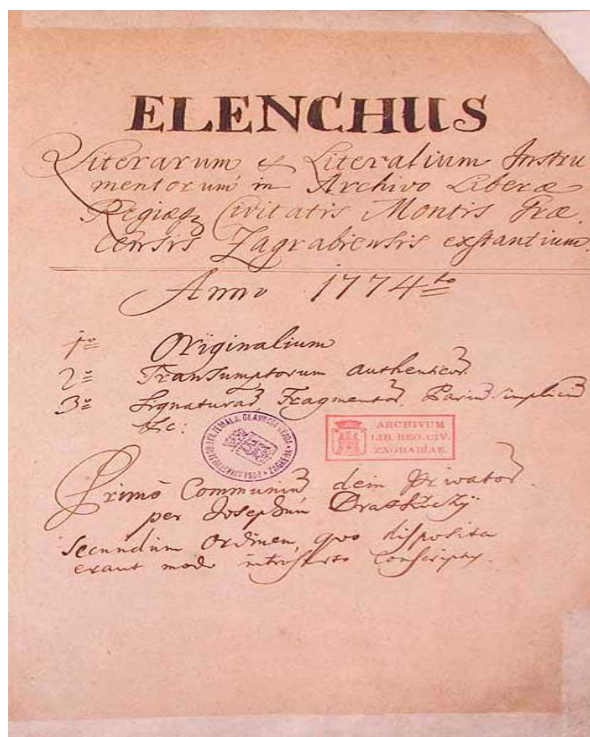 ELENCHUS
Literarum & Literalium Instru
mentorum in Archivo Liberæ
Regiæq Civitatis Montis Græ
censis Zagrabiensis exstantium.
Anno 1774to
1o Originalium
2o Transumptorum authenticor
3o Signatura Fragmentor Parium simplicium
&c:
ARCHIVUM
LIB. REG. CIV.
ZAGRABIAE.
Primo Communium dein Privator
per Josephum
Secundum Ordinem, quo disposita
erant modo conscriptus.